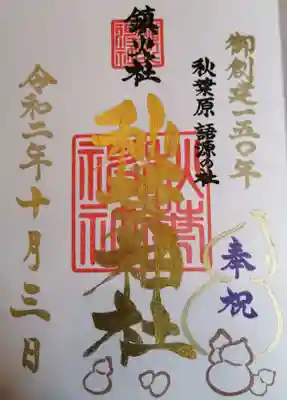 御創建一五〇年
奉祝
秋葉原 語源の社
鎮火社
秋葉神社
秋葉
神社
令和二年十月三日